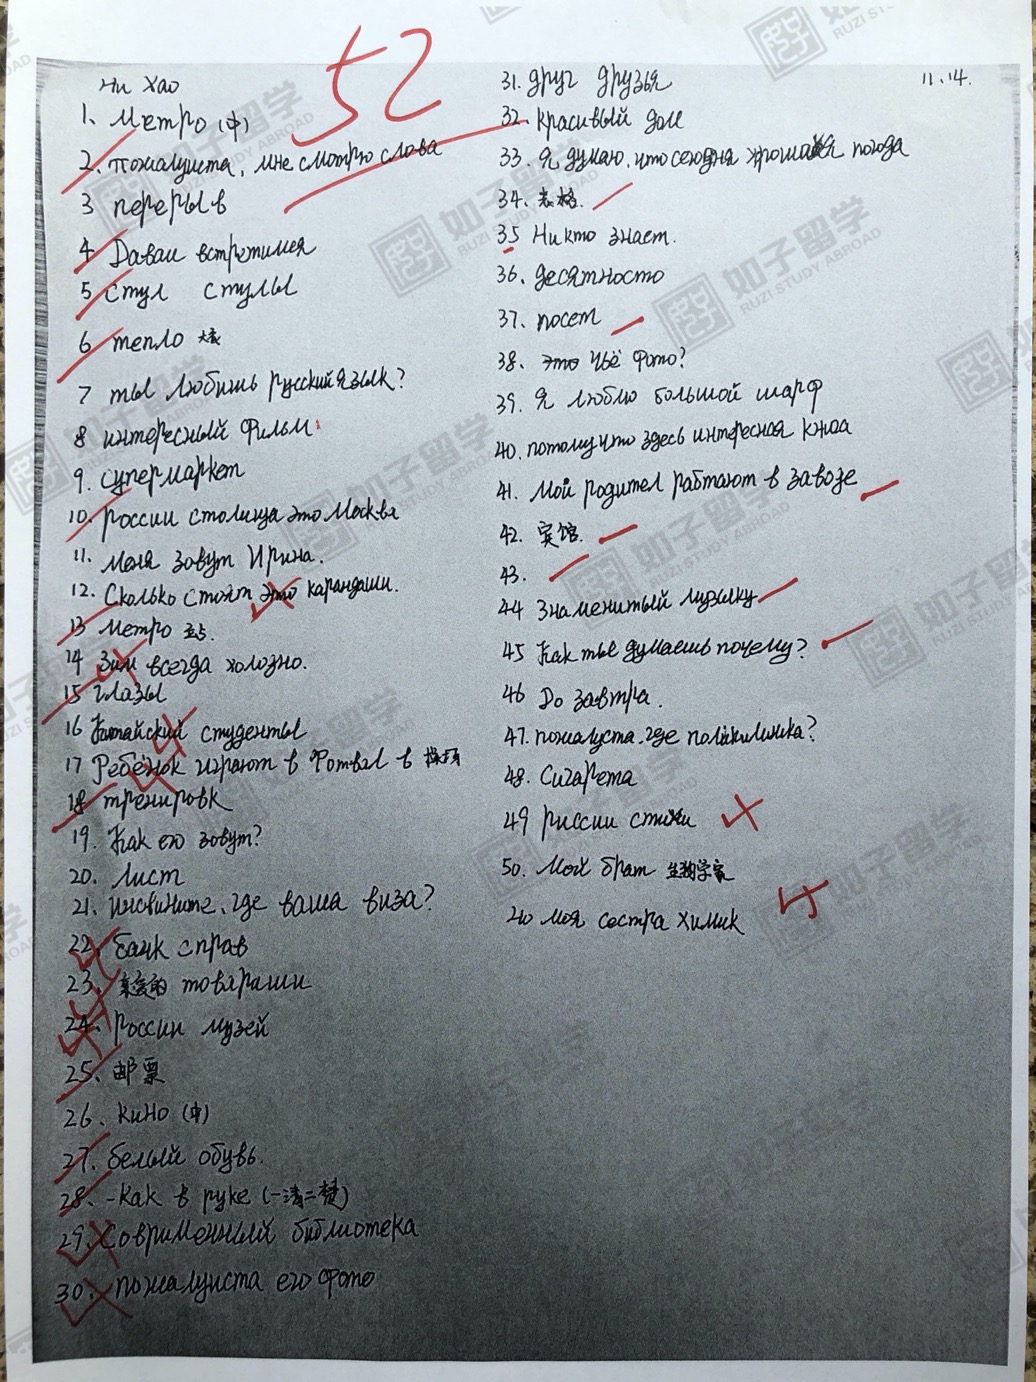 Ни Хао
52
11.14.
1. Метро (中)
2. пожалуиста, мне смотрю слова
3 перерыв
4 Даваи встротимея
5 Стул стулы
6 тепло
7 ты любишь русский язык?
8 интересный фильм
9. супермаркет
10. россии столица это Москва
11. Меня зовут Ирина.
12. Сколько стоят это карандаши.
13 Метро 站.
14 Зим всегда холозно.
15 глазы
16 Китайский студенты
17 Ребёнок играют в Фотвал в 操场
18 тренировк
19. Как его зовут?
20. Лист
21. Инсвините, где ваша виза?
22. банк справ
23. 亲爱的 товараши
24. России музей
25. 邮票
26. кино (中)
27. белый обувь.
28. -как в руке (一清二楚)
29. Соврименный библиотека
30. пожалуиста его фото
31. друг друзья
32. красивый дом
33. Я думаю, что сегодня хрошая погода
34. 表格.
35 Никто знает.
36. десятность
37. посет
38. это чьё фото?
39. Я люблю большой шарф
40. потому что здесь интересная книга
41. Мой родител работают в завозе
42. 宾馆.
43.
44 Знаменитый музыку
45 Как ты думаешь почему?
46 До завтра.
47. пожалуста, где поликлиника?
48. Сигарета
49 риссии стихи
50. Мой брат 生物学家
моя сестра химик
如子留学
RUZI STUDY ABROAD